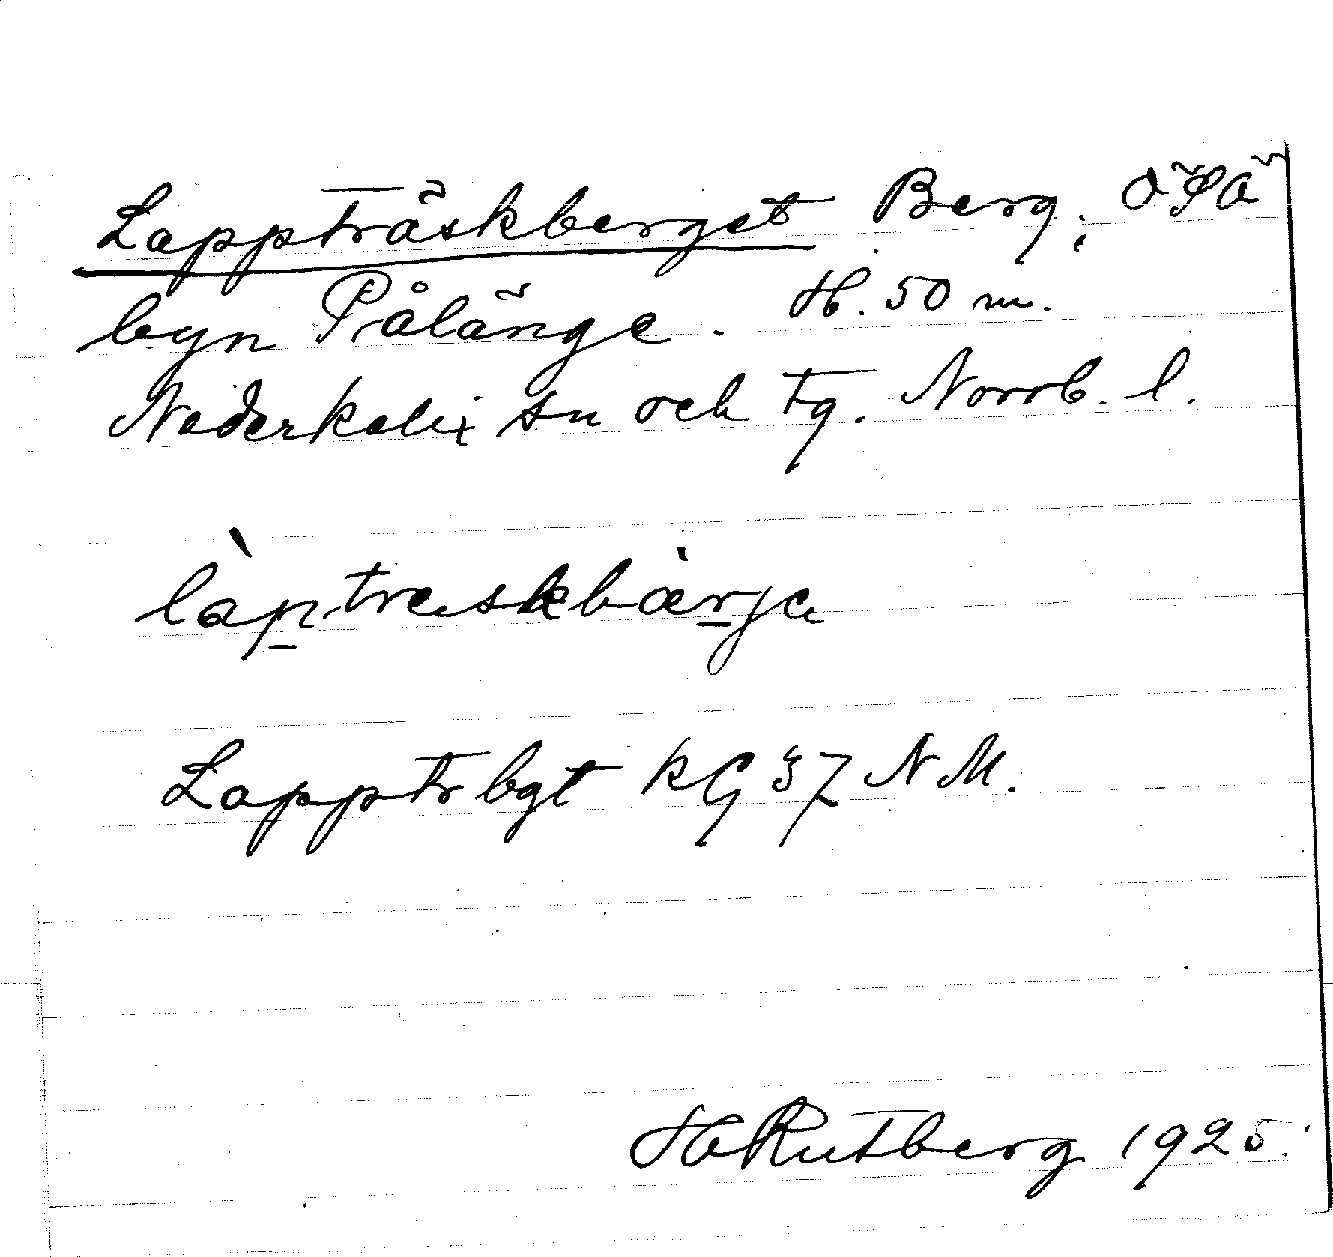 Lappträskberget Berg; ÖSÖ
byn Pålänge. H. 50 m.
Nederkalix sn och tg. Norrb. l.
làptræskbærje
Lapptrbgt KG 37 NM.
H Rutberg 1925.